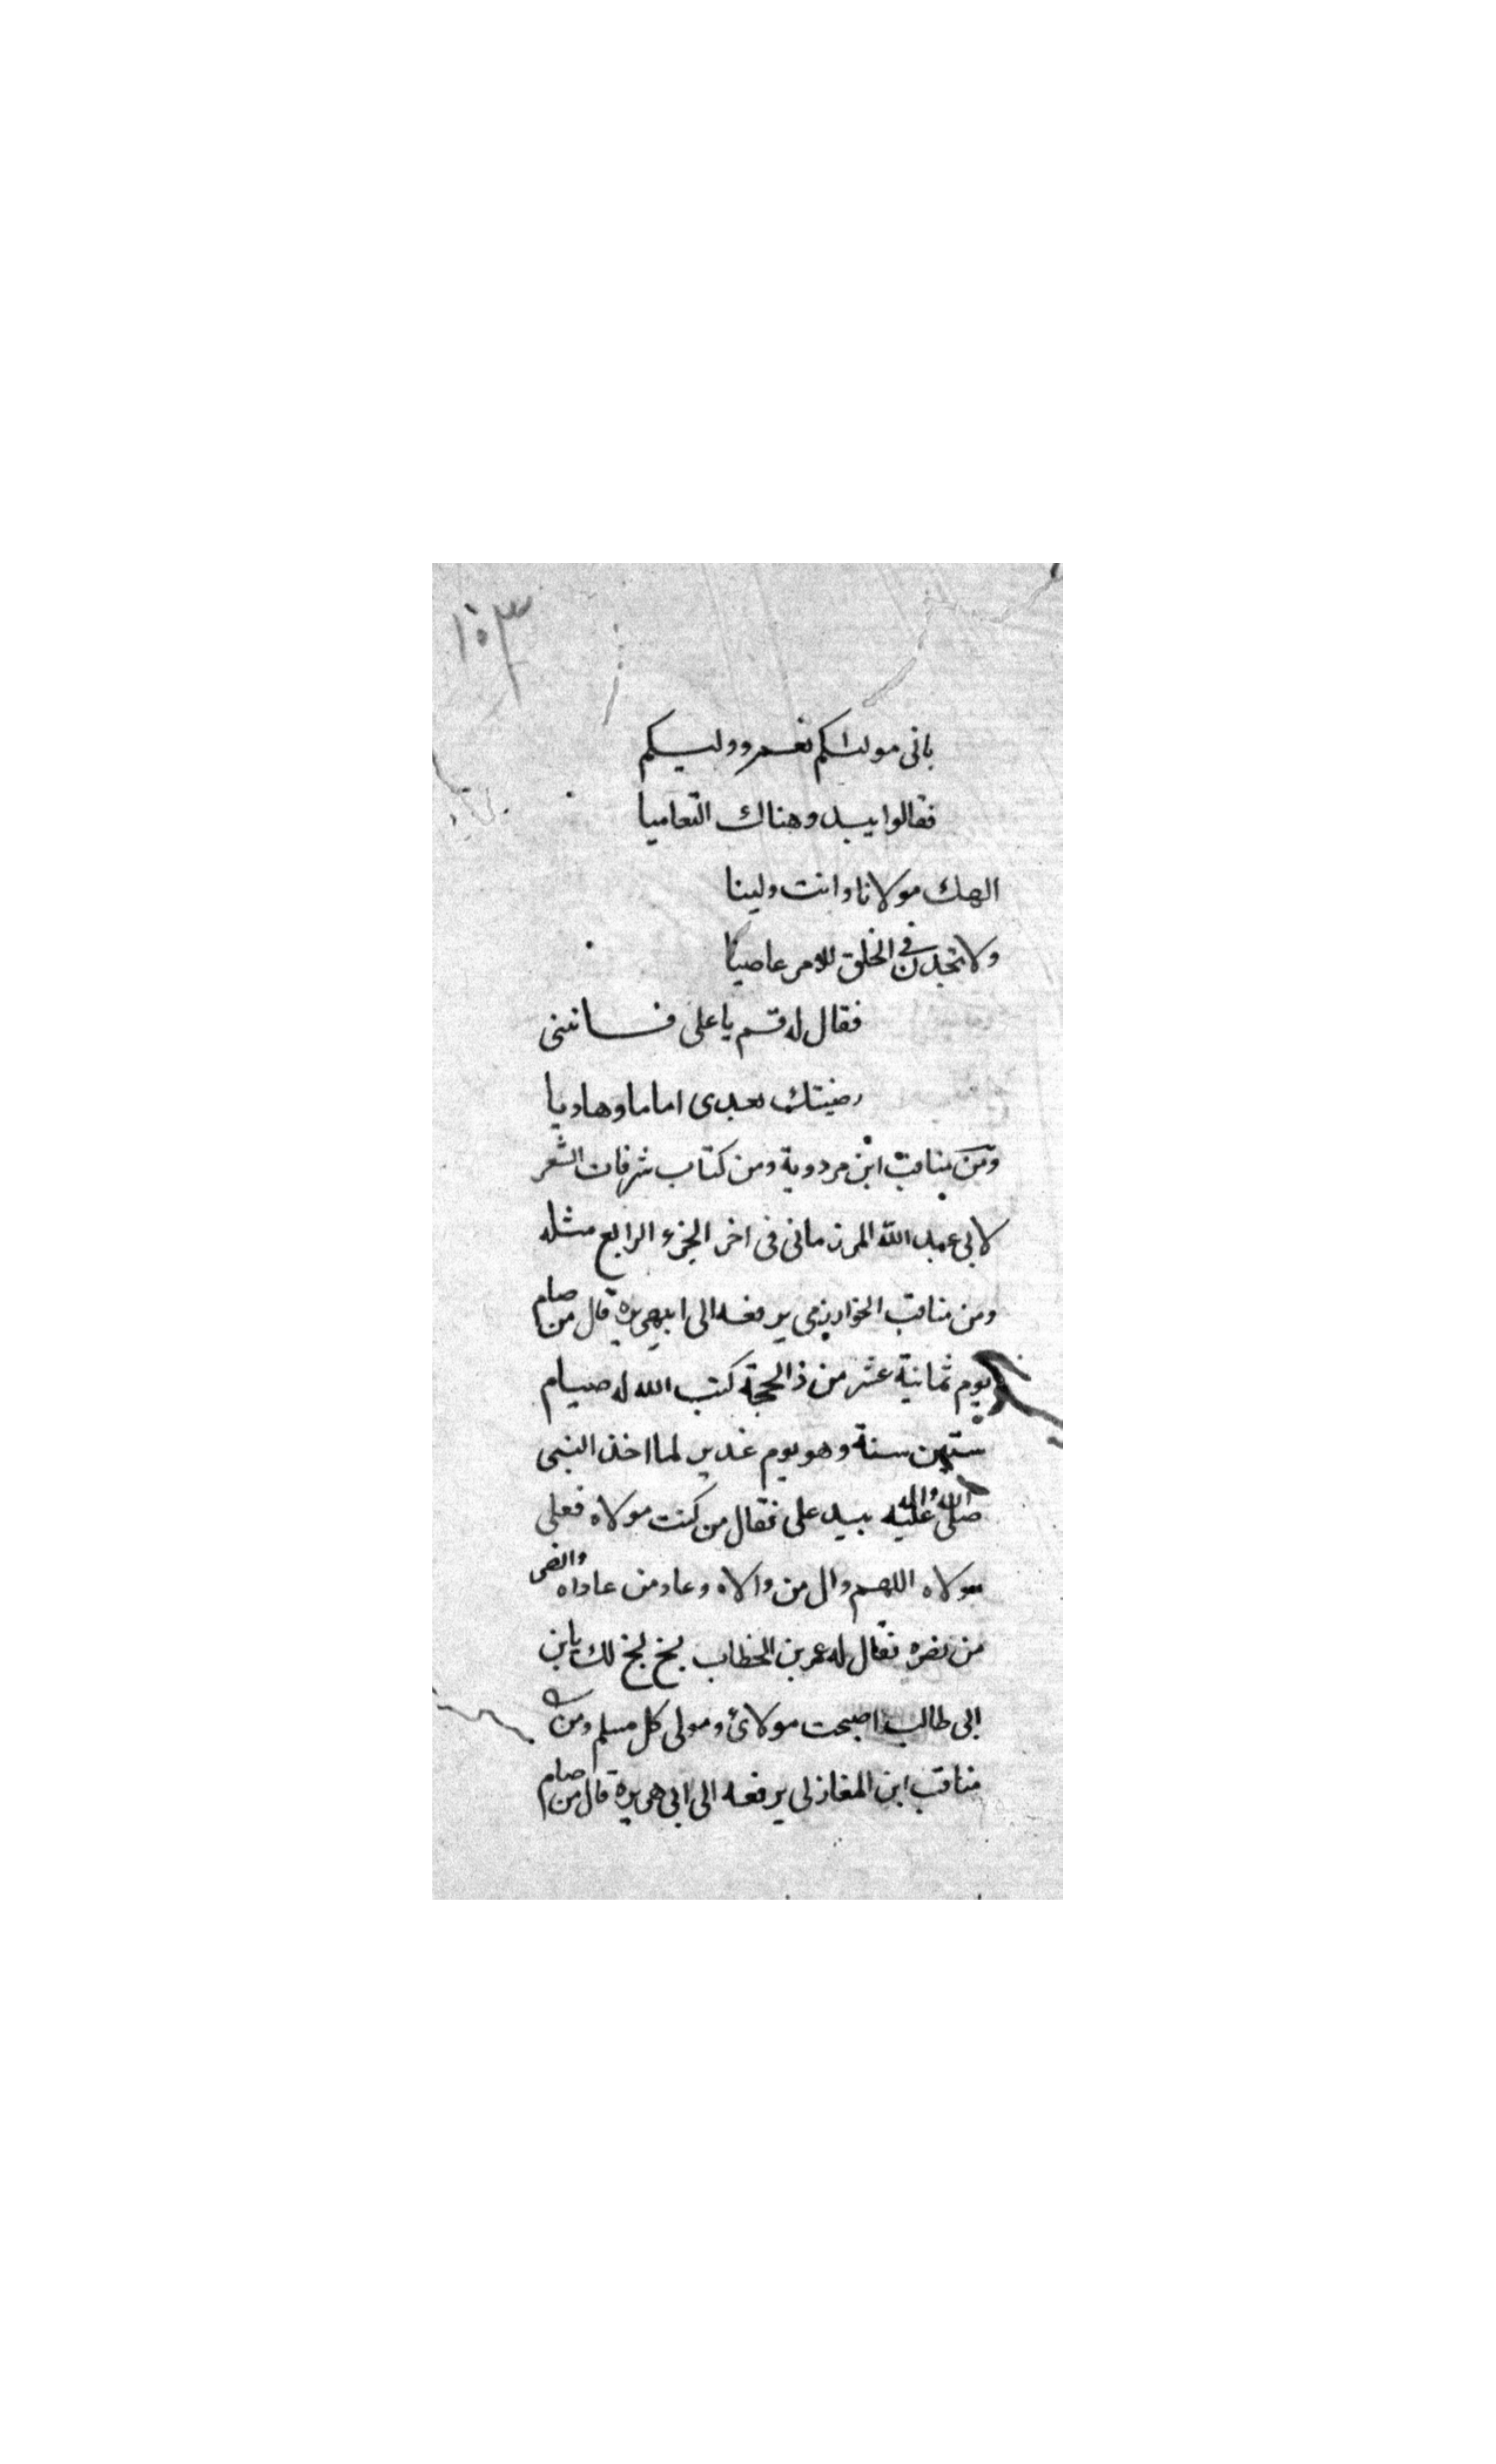 ١٠٣
بانى مولئكم نعم ووليكم
فقالوا يبدو هناك التعاميا
الهك مولانا وانت ولينا
ولا تجدن فى الخلق للامر عاصيا
فقال له قم يا على فاننى
رضيتك بعدى اماما وهاديا
ومن مناقب ابن مردوية ومن كتاب شرفات الشعر
لابى عبد الله المرزمانى فى اخر الجزء الرابع مثله
ومن مناقب الخوارزمى يرفعه الى ابيهريرة قال من صام
يوم ثمانية عشر من ذالحجة كتب الله له صيام
ستين سنة وهو يوم غدير لما اخذ النبى
صلى الله عليه واله بيد على فقال من كنت مولاه فعلى
مولاه اللهم وال من والاه وعاد من عاداه وانصر
من نصره فقال له عمر بن الخطاب بخ بخ لك يابن
ابى طالب اصبحت مولائ ومولى كل مسلم ومن
مناقب ابن المغازلى يرفعه الى ابى هريرة قال من صام